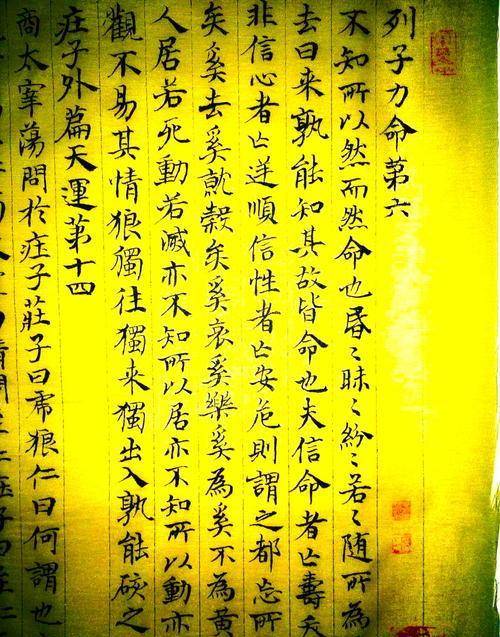 列子力命第六
不知所以然而然命也昬〻昧〻紛〻若〻随所為
去日来孰能知其故皆命也夫信命者亡壽夭
非信心者亡逆順信性者亡安危則謂之都忘所
矣奚去奚就穀矣奚哀奚樂奚為奚不為黄
人居若死動若滅亦不知所以居亦不知所以動亦
觀不易其情狼獨往獨来獨出入孰能碍之
庄子外篇天運第十四
商太宰蕩問於庄子莊子曰虎狼仁曰何謂也